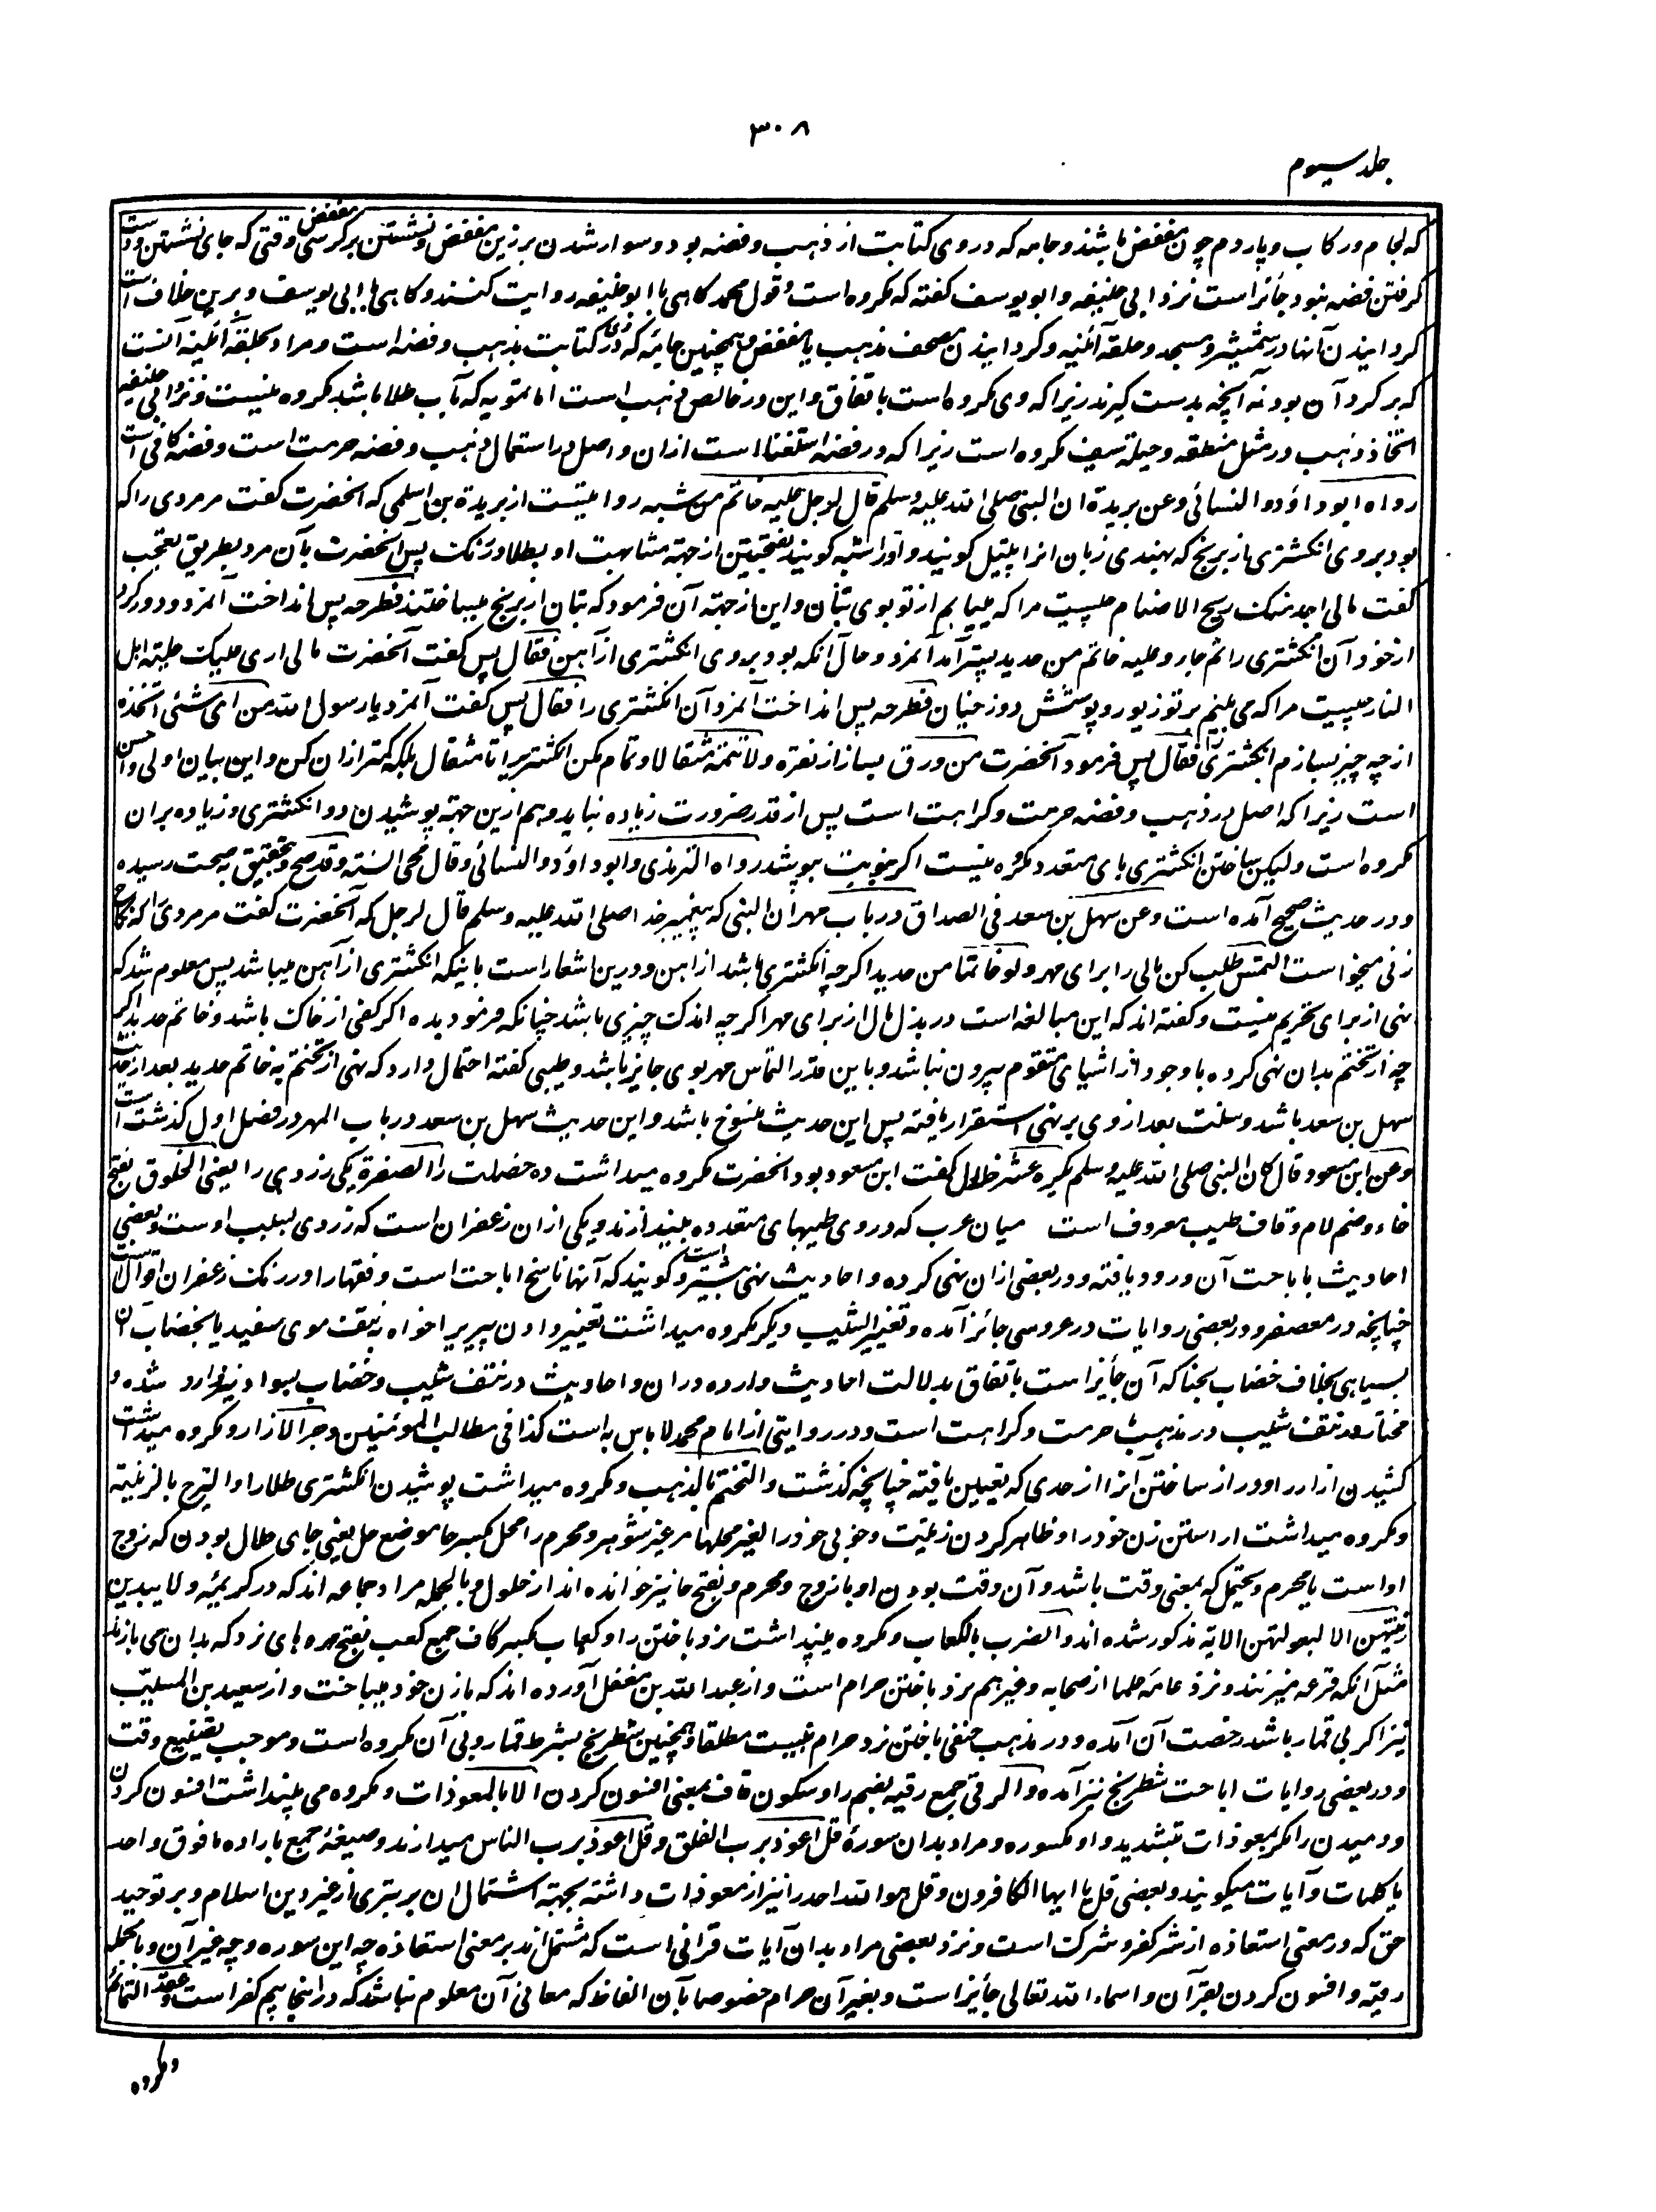 ۳۰۸
جلد سیوم
که لجام و رکاب و پاردم چون مفضض باشند و جامه که در وی کتابت از ذهب و فضه بود و سوار شدن بر زین مفضض و نشستن بر کرسی مفضض وقتی که جای نشستن و دست
کرفتن فضه نبود جائز است نزد ابی حنیفه و ابو یوسف کفته که مکروه است و قول محمد کاهی با ابو حنیفه روایت کنند و کاهی با ابی یوسف و برین خلاف است
کردانیدن آنها در شمشیر و مسجد و حلقه آئنیه و کردانیدن مصحف مذهب یا مفضض و همچنین جامه که دروی کتابت بذهب و فضه است و مراد بحلقه آئینه آنست
که بر کرد آن بود نه آنچه بدست کیرند زیرا که وی مکروه است باتفاق و این در خالص ذهب است اما تمویه که بآب طلا باشد مکروه نیست و نزد ابی حنیفه
اتخاذ ذهب در مثل منطقه و حیله سیف مکروه است زیرا که در فضه استغنا است ازان و اصل در استعمال ذهب و فضه حرمت است و فضه کافی است
رواه ابو داؤد و النسائی و عن بریدة ان النبی صلی الله علیه وسلم قال لرجل علیه خاتم من شبه روایتست از بریدة بن اسلمی که آنحضرت کفت مر مردی را که
بود بر وی انکشتری از برنج که بهندی زبان انرا پیتل کویند و اورا شبه کویند بفتحتین از جهة مشابهت او بطلا در رنک پس آنحضرت بآن مرد بطریق تعجب
کفت مالی اجد منک ریح الاصنام چیست مرا که مییابم از تو بوی بتان و این از جهة آن فرمود که بتان از برنج میساختند فطرحه پس انداخت آنمرد و دور کرد
از خود آن انکشتری را ثم جاء و علیه خاتم من حدید پستر آمد آنمرد و حال آنکه بود بر وی انکشتری از آهن فقال پس کفت آنحضرت مالی اری علیک حلیة اهل
النار چیست مرا که می بینم بر تو زیور و پوشش دوزخیان فطرحه پس انداخت آنمرد آن انکشتری را فقال پس کفت آنمرد یا رسول الله من ای شئی اتخذه
از چه چیز بسازم انکشتری را فقال پس فرمود آنحضرت من ورق بساز از نقره و لا تتمه مثقالا و تمام مکن انکشتریرا تا مثقال بلکه کمتر ازان کن و این بیان اولی و احسن
است زیرا که اصل در ذهب و فضه حرمت و کراهت است پس از قدر ضرورت زیاده نباید و هم ازین جهة پوشیدن دو انکشتری و زیاده بران
مکروه است ولیکن ساختن انکشتری های متعدد مکره نیست اکر بنوبت بپوشد رواه الترمذی و ابو داؤد و النسائی و قال محی السنة و قد صح و بتحقیق بصحت رسیده
و در حدیث صحیح آمده است و عن سهل بن سعد فی الصداق در باب مهر ان النبی که پیغمبر خدا صلی الله علیه وسلم قال لرجل که آنحضرت کفت مر مردی را که نکاح
زنی میخواست التمس طلب کن مالی را برای مهر و لو خاتما من حدید اکرچه انکشتری باشد از اهن و درین اشعار است باینکه انکشتری از آهن میباشد پس معلوم شد که
نهی از برای تحریم نیست و کفته اند که این مبالغه است در بذل مال از برای مهر اکرچه اندک چیزی باشد چنانکه فرمود بده اکر کفی از خاک باشد و خاتم حدید اکر
چه از تختم بدان نهی کرده با وجود از اشیای متقوم بیرون نباشد و باین قدر التماس مهر بوی جایز باشد و طیبی کفته احتمال دارد که نهی از تختم به خاتم حدید بعد از حدیث
سهل بن سعد باشد و سنت بعد از وی بر نهی استقرار یافته پس این حدیث منسوخ باشد و این حدیث سهل بن سعد در باب المهر در فصل اول کذشت است
و عن ابن مسعود قال کان النبی صلی الله علیه وسلم یکره عشر خلال کفت ابن مسعود بود آنحضرت مکروه میداشت ده خصلت را الصفرة یکی زردی را یعنی الخلوق بفتح
خاء و ضم لام و قاف طیب معروف است میان عرب که در وی طیبهای متعدده بیندازند و یکی ازان زعفران است که زردی بسبب اوست و بعضی
احادیث باباحت آن ورود یافته و در بعضی ازان نهی کرده و احادیث نهی بیشتر است و کویند که آنها ناسخ اباحت است و فقها را در رنک زعفران اقوال است
چنانچه در معصفر و در بعضی روایات در عروسی جائز آمده و تغییر الشیب دیکر مکروه میداشت تغییر دادن پیری را خواه به نتف موی سفید یا بخضاب آن
بسیاهی بخلاف خضاب بحنا که آن جائز است باتفاق بدلالت احادیث وارده دران و احادیث در نتف شیب و خضاب بسواد نیز وارد شده و
مختار در نتف شیب در مذهب حرمت و کراهت است و در روایتی از امام محمد لا باس به است کذا فی مطالب المومنین و جر الازار و مکروه میداشت
کشیدن ازار را و دراز ساختن آنرا از حدی که تعیین یافته چنانچه کذشت و التختم بالذهب و مکروه میداشت پوشیدن انکشتری طلا را و التبرج بالزینة
و مکروه میداشت اراستن زن خود را و ظاهر کردن زینت و خوبی خود را لغیر محلها مر غیر شوهر و محرم را محل بکسر حا موضع حل یعنی جای حلال بودن که زوج
اواست یا محرم و یحتمل که بمعنی وقت باشد و آن وقت بودن او با زوج و محرم و بفتح حا نیز خوانده اند از حلول و بالجمله مراد جماعه اند که در کریمئه و لا یبدین
زینتهن الا لبعولتهن الایه مذکور شده اند و الضرب بالکعاب و مکروه میپنداشت نرد باختن را و کعاب بکسر کاف جمع کعب بفتح مهره های نرد که بدان می بازند
مثل آنکه قرعه میزنند و نزد عامه علما از صحابه و غیرهم نرد باختن حرام است و از عبد الله بن مغفل آورده اند که بازن خود میباخت و از سعید بن المسیّب
نیز اکر بی قمار باشد رخصت آن آمده و در مذهب حنفی باختن نرد حرام نیست مطلقا و همچنین شطرنج بشرط قمار و بی آن مکروه است و موجب تضییع وقت
و در بعضی روایات اباحت شطرنج نیز آمده و الرقی جمع رقیه بضم را و سکون قاف بمعنی افسون کردن الا بالمعوذات و مکروه می پنداشت افسون کردن
و دمیدن را مکر بمعوذات بتشدید واو مکسوره و مراد بدان سورهٔ قل اعوذ برب الفلق و قل اعوذ برب الناس میدارند و صیغهٔ جمع باراده ما فوق واحد
یا کلمات و آیات میکویند و بعضی قل یا ایها الکافرون و قل هو الله احد را نیز از معوذات داشته بجهة اشتمال ان بر بتری از غیر دین اسلام و بر توحید
حق که در معنی استعاذه از شر کفر و شرک است و نزد بعضی مراد بدان آیات قرانی است که مشتمل اند بر معنی استعاذه چه این سوره و چه غیر آن و بالجمله
رقیه و افسون کردن بقرآن و اسماء الله تعالی جائز است و بغیر آن حرام خصوصا بآن الفاظ که معانی آن معلوم نباشد که در انجا بیم کفر است و عقد التمائم
و مکروه